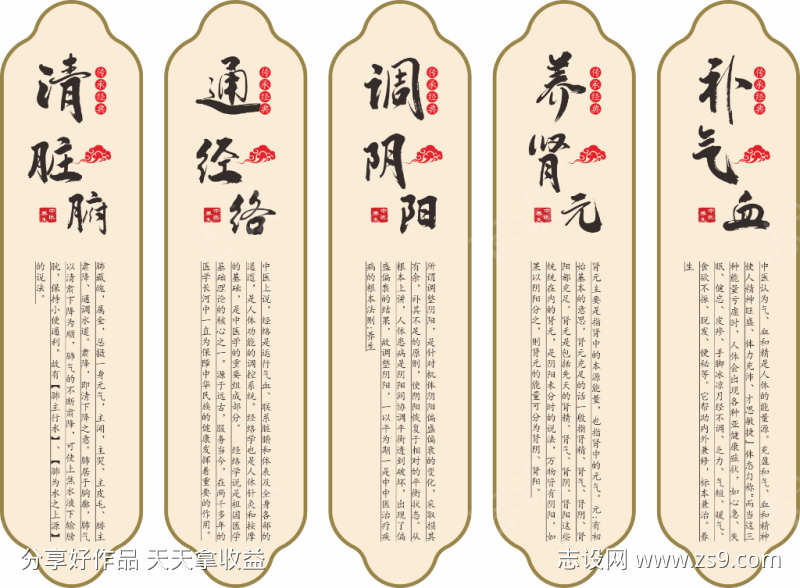 清脏腑
传承经典
肺藏魄，属金，总摄一身元气，主闻，主哭，主皮毛，肺主
肃降、通调水道。肃降，即清肃下降之意。肺居于胸廓，肺气
以清肃下降为顺，肺气的不断肃降，可使上焦水液下输膀
胱，保持小便通利，故有【肺主行水】、【肺为水之上源】
的说法。
通经络
传承经典
中医上说，经络是运行气血、联系脏腑和体表及全身各部的
通道，是人体功能的调控系统。经络学也是人体针灸和按摩
的基础，是中医学的重要组成部分。 经络学说是祖国医学
基础理论的核心之一，源于远古，服务当今。在两千多年的
医学长河中一直为保障中华民族的健康发挥着重要的作用。
调阴阳
传承经典
所谓调整阴阳，是针对机体阴阳偏盛偏衰的变化，采取损其
有余，补其不足的原则，使阴阳恢复于相对的平衡状态。从
根本上讲，人体患病是阴阳间协调平衡遭到破坏，出现了偏
盛偏衰的结果，故调整阴阳，一以平为期一是中中医治疗疾
病的根本法则.养生
养肾元
传承经典
肾元主要是指肾中的本源能量，也指肾中的元气。元：有初
始基本的意思，肾元充足的话一般指肾精、肾气、肾阴、肾
阳都充足。肾元是包括先天的肾精、肾气、肾阴、肾阳这些
统统在内的肾元，是阴阳未分时的说法，万物皆有阴阳，如
果以阴阳分之，则肾元的能量可分为肾阴、肾阳。
补气血
传承经典
中医认为气、血和精是人体的能量源。充盈和气、血和精神
使人精神旺盛、体力充沛、才思敏捷"体态匀称。而当这三
种能量亏虚时，人体会出现各种亚健康症状，如心急、失
眠、健忘、皮疹、手脚冰凉月经不调、乏力、气短、暖气、
食欲不振、脱发、便秘等。它帮助内外兼修，标本兼治。养
生
分享好作品 天天拿收益
志设网 www.zs9.com